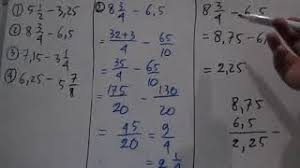 ① 5 1/2 - 3,25
② 8 3/4 - 6,5
③ 7,15 - 3 1/4
④ 6,25 - 5 7/8
② 8 3/4 - 6,5
= 32+3/4 - 65/10
= 35/4 - 65/10
= 175/20 - 130/20
= 45/20 = 9/4
= 2 1/4
8 3/4 - 6,5
= 8,75 - 6,
= 2,25
8,75
6,5
2,25 -